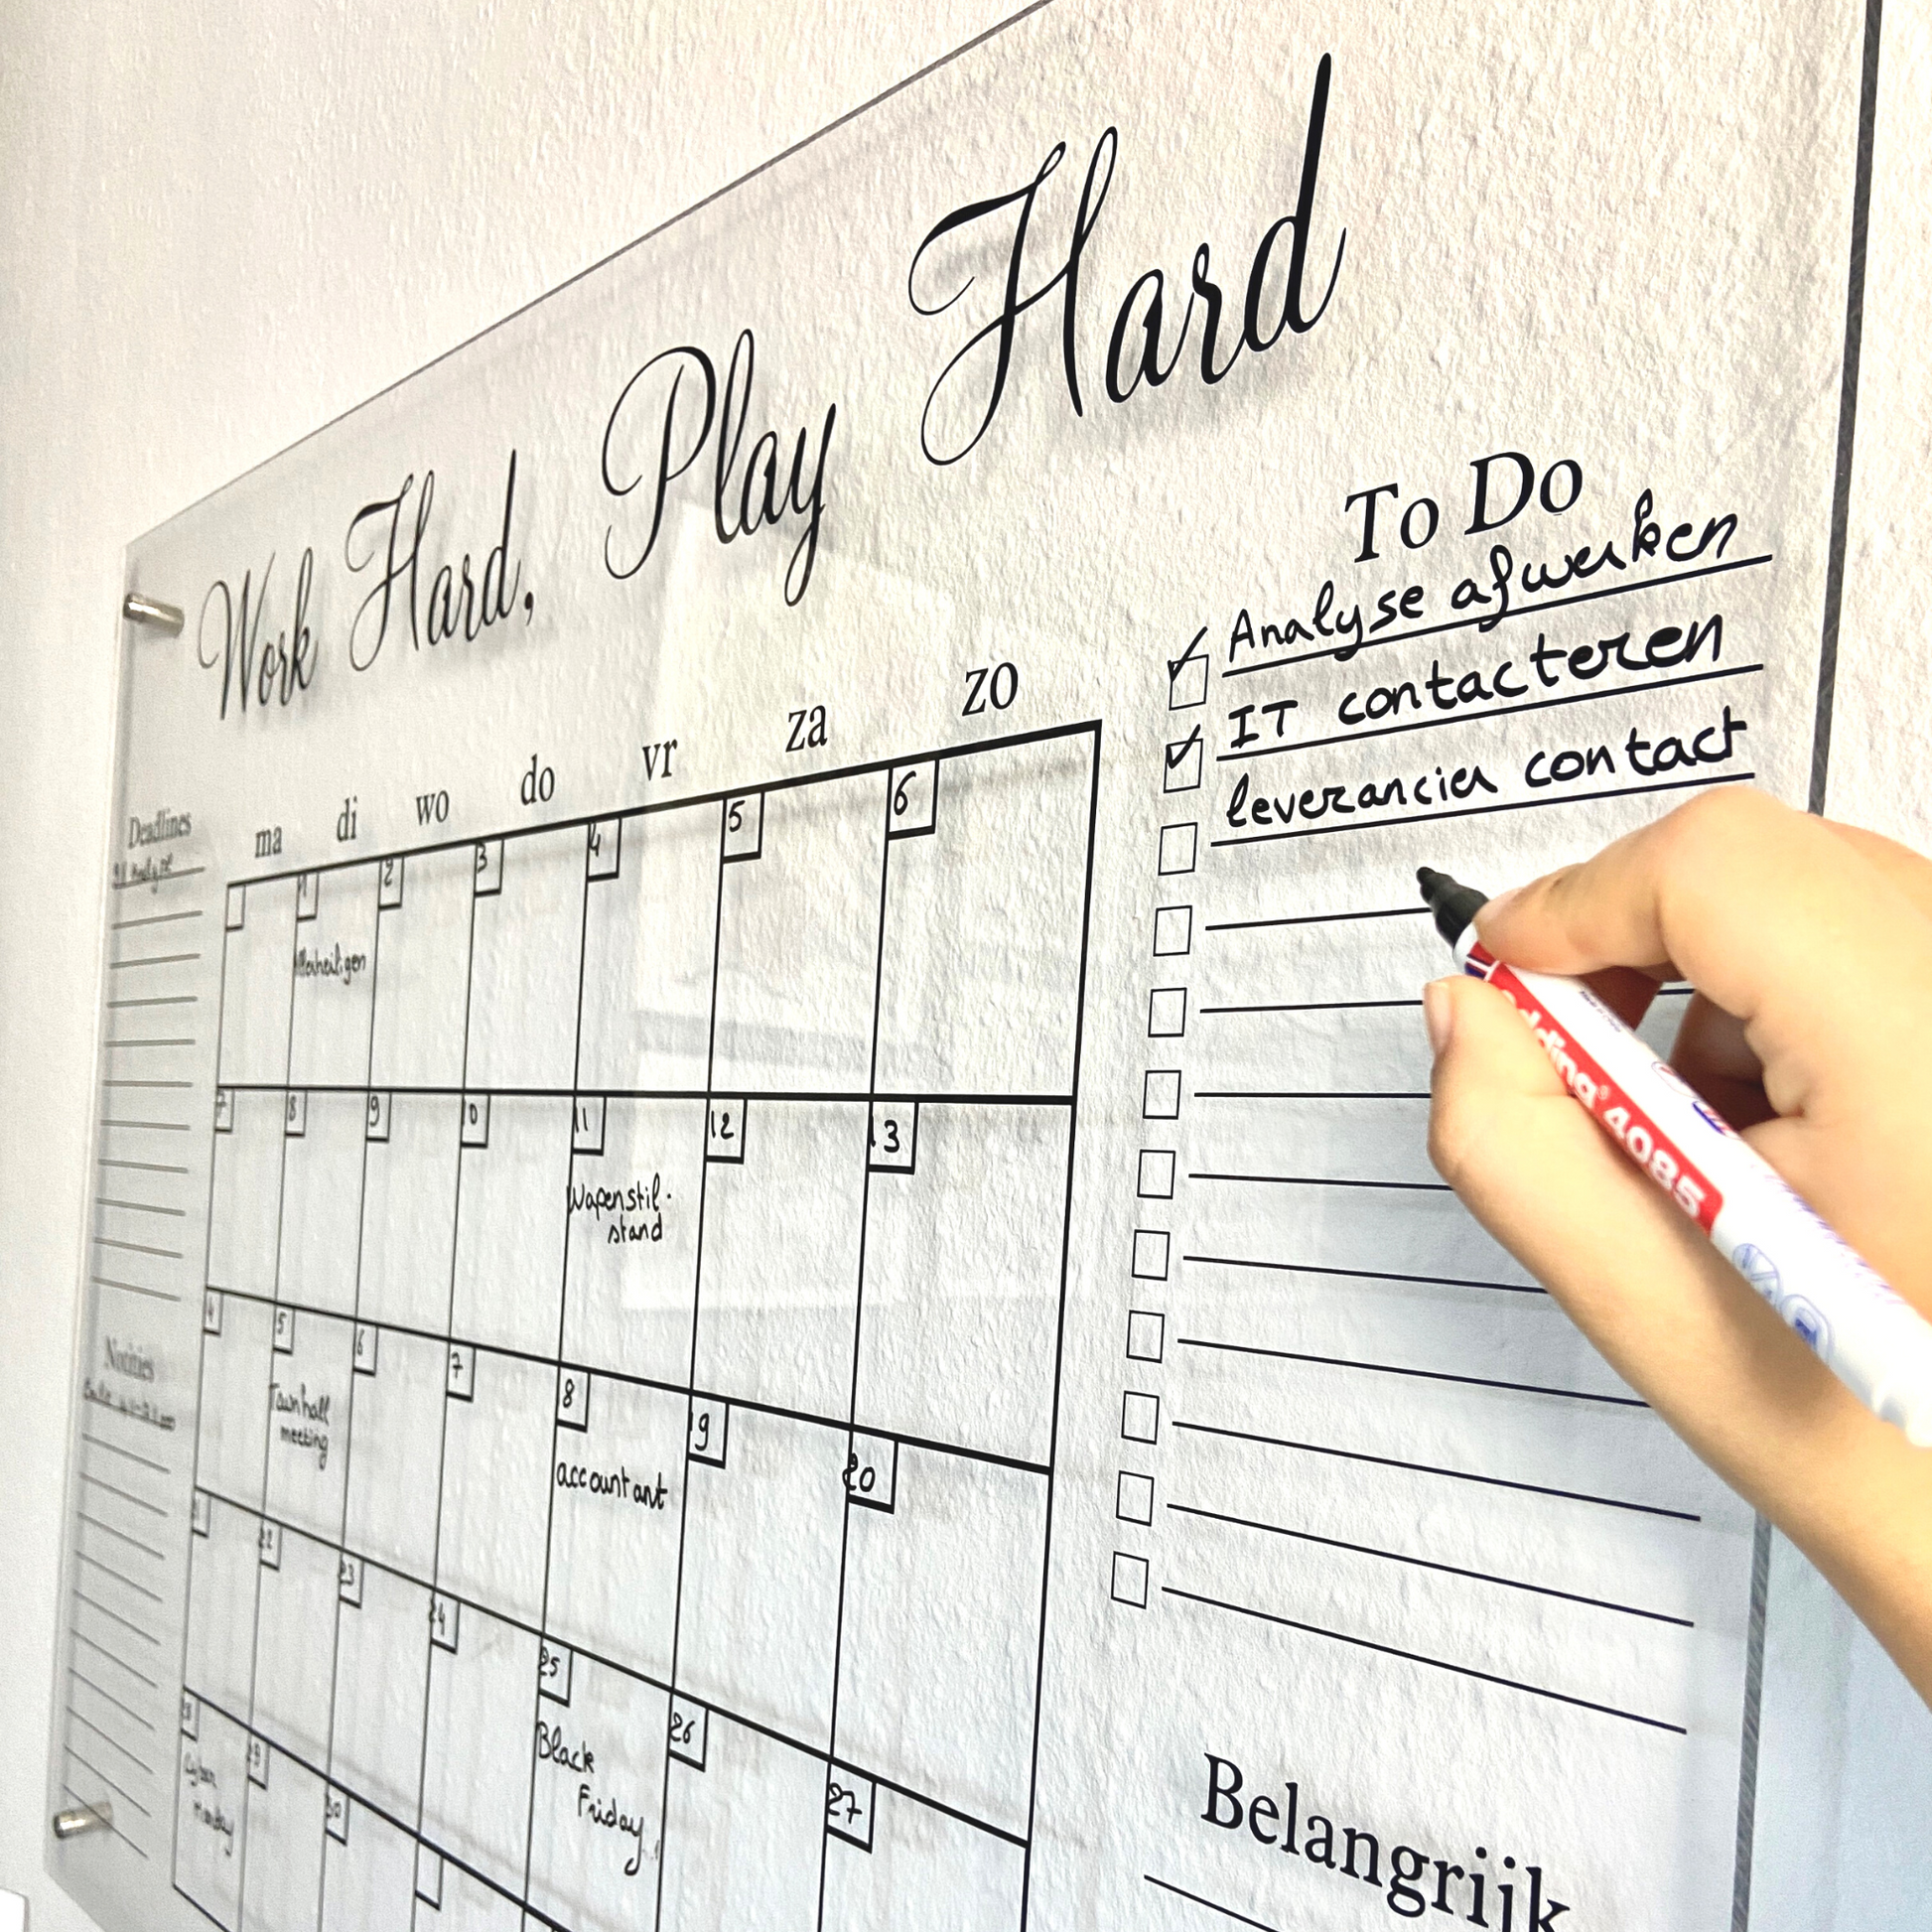 Work Hard, Play Hard
Deadlines
ma di wo do vr za zo
1 2 3 4 5 6
Allerheiligen
7 8 9 10 11 12 13
Wapenstil-
stand
14 15 16 17 18 19 20
Townhall
meeting
accountant
21 22 23 24 25 26 27
Black
Friday
28 29 30
Cyber
Monday
Notities
To Do
Analyse afwerken
IT contacteren
leverancier contact
Belangrijk
edding 4085